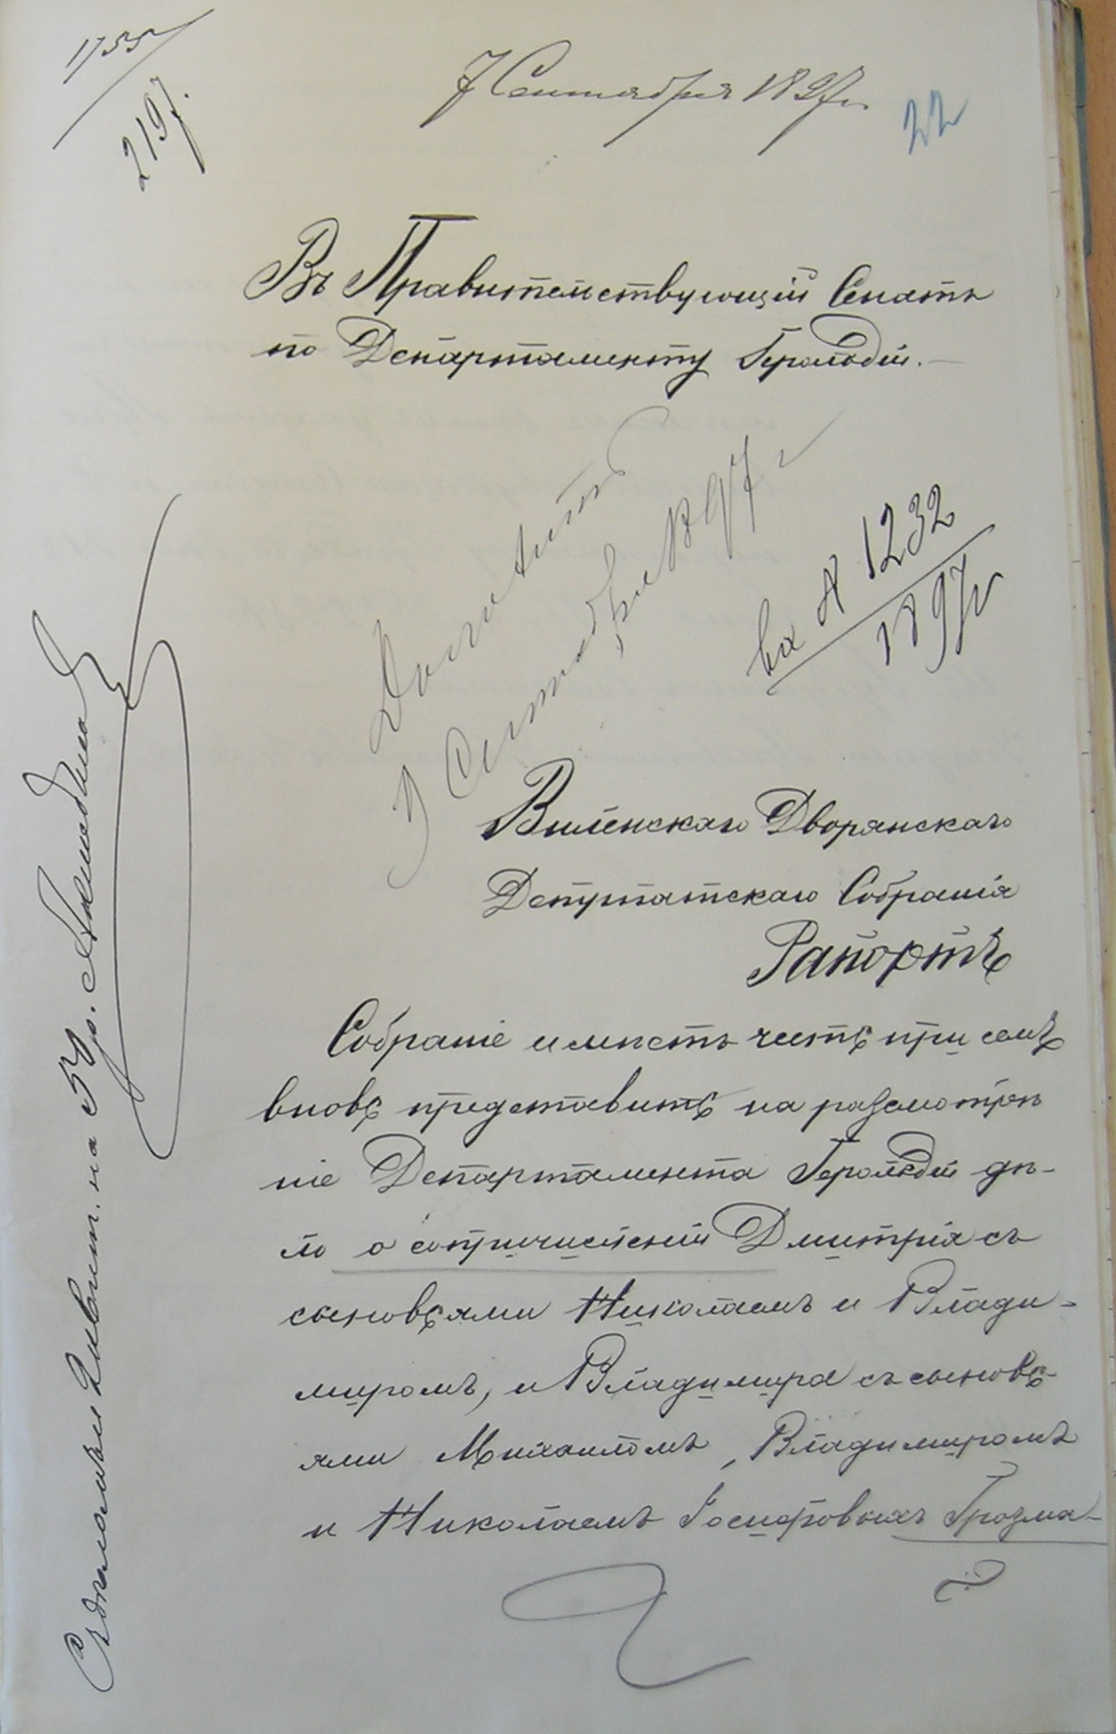 1755
2197.
7 Сентября 1897 г.
22
Въ Правительствующій Сенатъ
по Департаменту Герольдіи.
9 Сентября 1897 г
вх № 1232
1897 г
Виленскаго Дворянскаго
Депутатскаго Собранія
Рапортъ
Собраніе имѣетъ честь при семъ
вновь представить на разсмотрѣ
ніе Департамента Герольдіи дѣ-
ло о сопричисленіи Дмитрія съ
сыновьями Николаемъ и Влади-
миромъ, и Владимира съ сыновь-
ями Михаиломъ, Владимиромъ
и Николаемъ Іосифовыхъ Грозма-
Съ дѣломъ на 59 л.